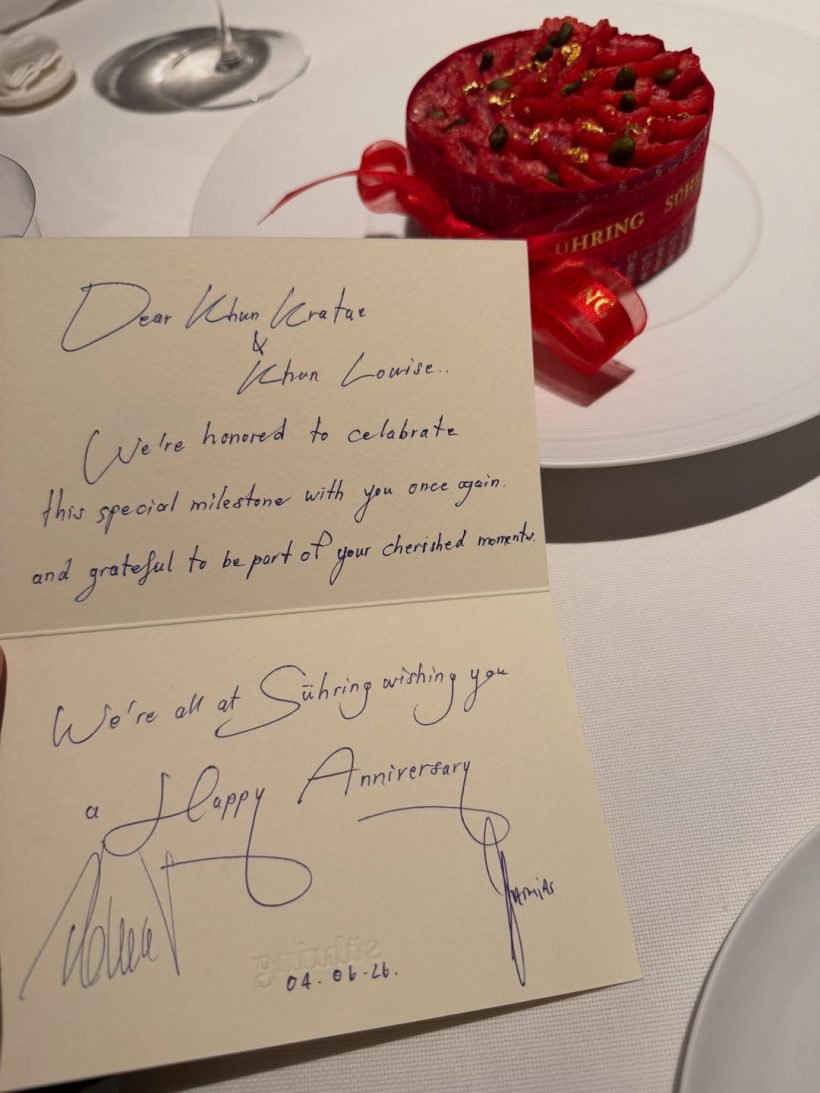 ÜHRING SÜH
Dear Khun Kratae
&
Khun Louise..
We're honored to celabrate
this special milestone with you once again.
and grateful to be part of your cherished moments.
We're all at Sühring wishing you
a Happy Anniversary
sühring
04.06.26.